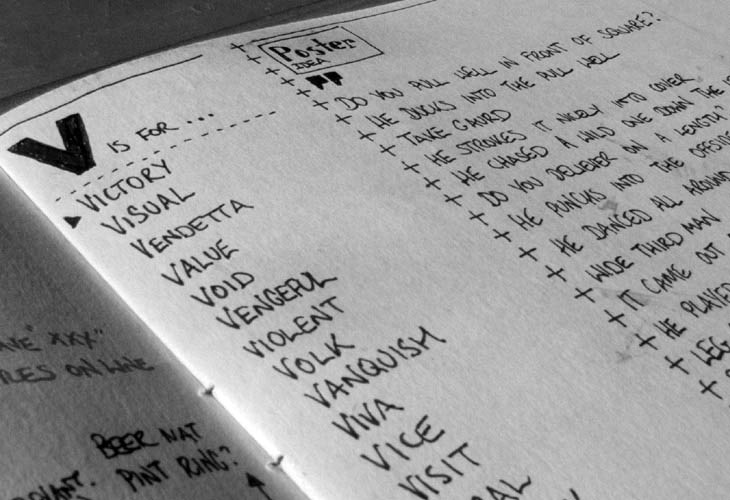 V IS FOR ...
VICTORY
VISUAL
VENDETTA
VALUE
VOID
VENGEFUL
VIOLENT
VOLK
VANQUISH
VIVA
VICE
VISIT
Poster
IDEA
+ DO YOU PULL WELL IN FRONT OF SQUARE?
+ HE DUCKS INTO THE PULL WELL
+ TAKE GAURD
+ HE STROKES IT NICELY INTO COVER
+ HE CHASED A WILD ONE DOWN THE
+ DO YOU DELIEVER ON A LENGTH?
+ HE PUNCHS INTO THE OFFSIDE
+ HE DANCED ALL AROUND
+ WIDE THIRD MAN
+ IT CAME OUT
+ HE PLAYED
+ LEG
XXX"
ON LINE
BEER MAT
PINT RING?